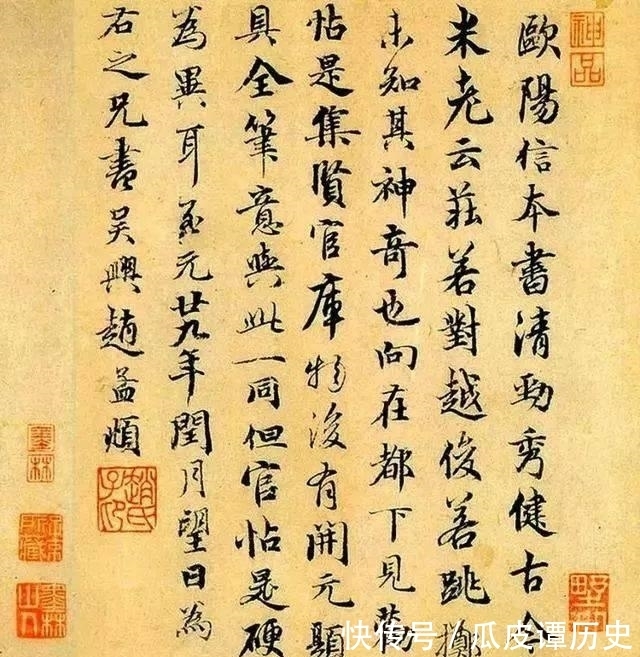 歐陽信本書清勁秀健古今
米老云莊若對越俊若跳擲
未知其神奇也向在都下見勸
帖是集賢官庫物後有開元題
具全筆意與此一同但官帖是硬
為異耳至元廿九年閏月望日為
右之兄書吳興趙孟頫
趙氏子昂
神品
墨林
快传号/瓜皮谭历史